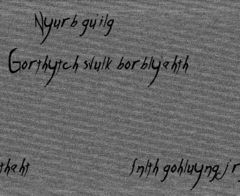 Nyurb guilg
Gorthytch slulk borblyahth
thaht Inlth gohluyng j r